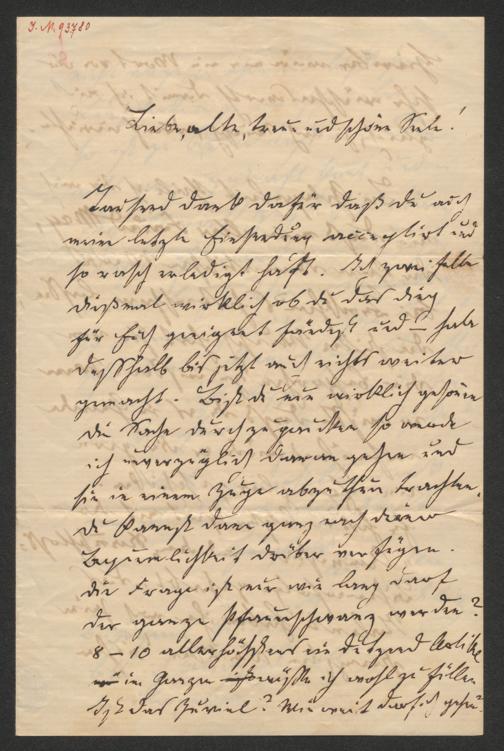 J. N. 93780
Liebe, alte, treue und schöne Seele!
Tausend Dank dafür daß du auch
meine letzte Einsendung acceptirt und
so rasch erledigt hast. Ich zweifelte
dießmal wirklich ob du das Ding
für Euch geeignet fändest und – habe
deßhalb bis jetzt auch nichts weiter
gemacht. Bist du nun wirklich gesonnen
die Sache durchzupauken so werde
ich unverzüglich daran gehen und
sie in einem Zuge abzuthun trachten.
Du kannst dann ganz nach deiner
Bequemlichkeit drüber verfügen.
Die Frage ist nur wie lang darf
der ganze Pfauenschwanz werden?
8–10 allerhöchstens ein dutzend Artikel
im Ganzen wüßte ich wohl zu füllen.
Ist das Zuviel? Wie weit darf ich gehen